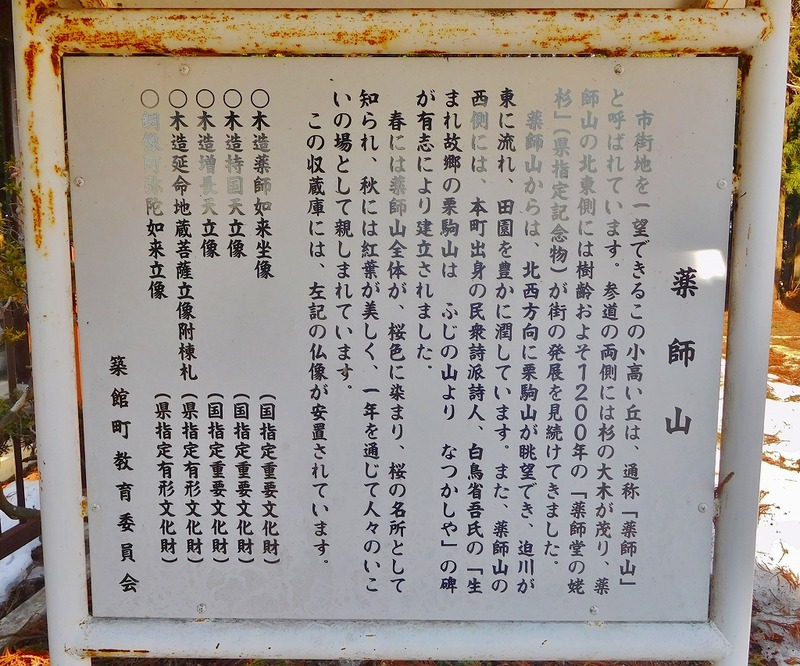 薬師山
市街地を一望できるこの小高い丘は、通称「薬師山」
と呼ばれています。参道の両側には杉の大木が茂り、薬
師山の北東側には樹齢およそ1200年の「薬師堂の姥
杉」(県指定記念物)が街の発展を見続けてきました。
薬師山からは、北西方向に栗駒山が眺望でき、迫川が
東に流れ、田園を豊かに潤しています。また、薬師山の
西側には、本町出身の民衆詩派詩人、白鳥省吾氏の「生
まれ故郷の栗駒山は ふじの山より なつかしや」の碑
が有志により建立されました。
春には薬師山全体が、桜色に染まり、桜の名所として
知られ、秋には紅葉が美しく、一年を通じて人々のいこ
いの場として親しまれています。
この収蔵庫には、左記の仏像が安置されています。
○木造薬師如来坐像 (国指定重要文化財)
○木造持国天立像 (国指定重要文化財)
○木造増長天立像 (国指定重要文化財)
○木造延命地蔵菩薩立像附棟札 (県指定有形文化財)
○銅像阿弥陀如来立像 (県指定有形文化財)
築館町教育委員会